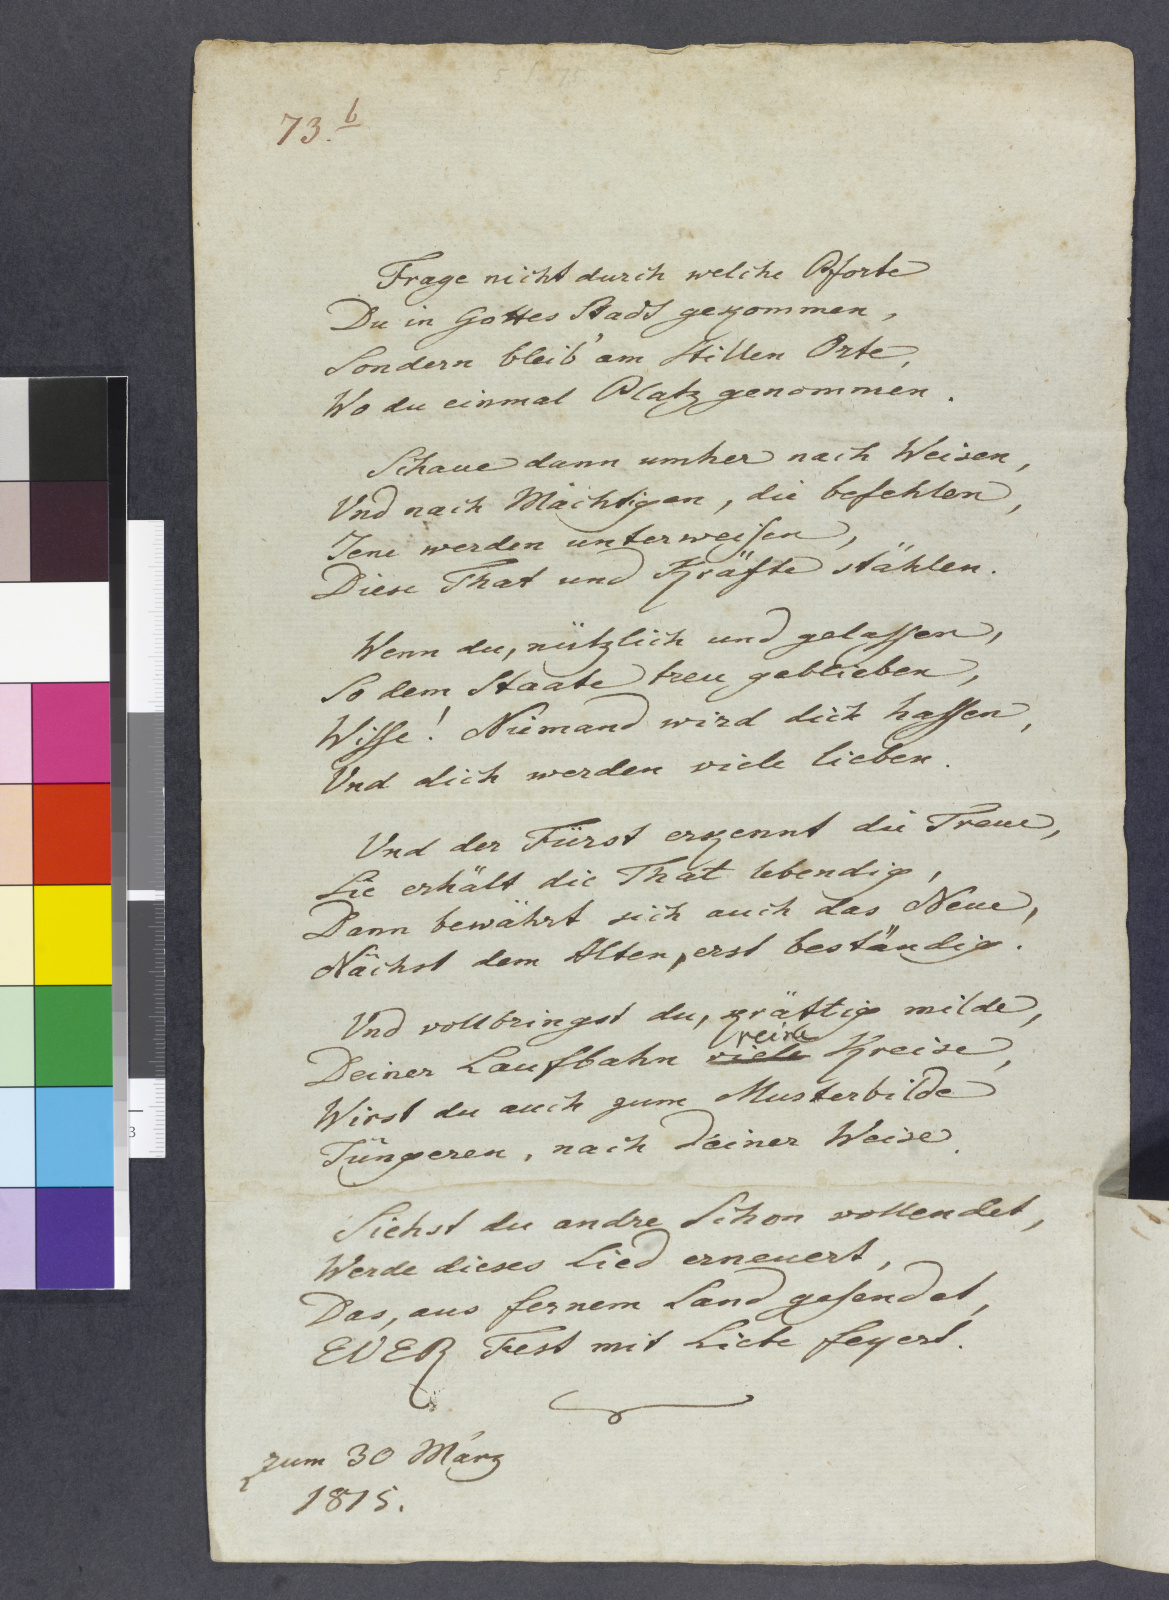 73.b
Frage nicht durch welche Pforte
Du in Gottes Stadt gekommen,
Sondern bleib' am stillen Orte,
Wo du einmal Platz genommen.
Schaue dann umher nach Weisen,
Und nach Mächtigen, die befehlen,
Jene werden unterweisen,
Diese That und Kräfte stählen.
Wenn du, nützlich und gelassen,
So dem Staate treu geblieben,
Wisse! Niemand wird dich hassen,
Und dich werden viele lieben.
Und der Fürst erkennt die Treue,
Sie erhält die That lebendig,
Dann bewährt sich auch das Neue,
Nächst dem Alten, erst beständig.
Und vollbringst du, kräftig milde,
reine
Deiner Laufbahn viele Kreise,
Wirst du auch zum Musterbilde
Jüngeren, nach deiner Weise.
Siehst du andre schon vollendet,
Werde dieses Lied erneuert,
Das, aus fernem Land gesendet,
EUER Fest mit Liebe feyert.
zum 30 März
1815.
3